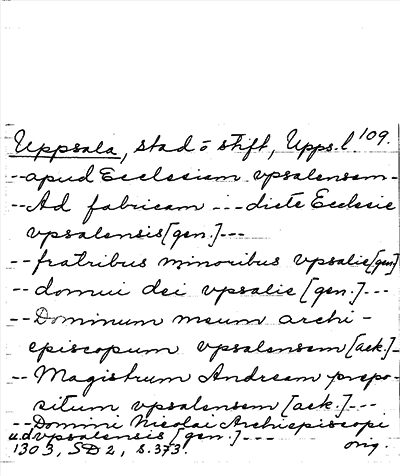 Uppsala, stad o stift, Upps.l 109.
--apud Ecclesiam vpsalensem-
--Ad fabricam --- dicte Ecclesie
vpsalensis [gen.]---
--fratribus minoribus vpsalie [gen]
-- domui dei vpsalie [gen.]---
--Dominum meum archi-
episcopum vpsalensem [ack.]-
--Magistrum Andream prepo-
situm vpsalensem [ack.]---
--Domini Nicolai Archiepiscopi
u.d. vpsalensis [gen.]---
1303, SD 2, s.373. orig.